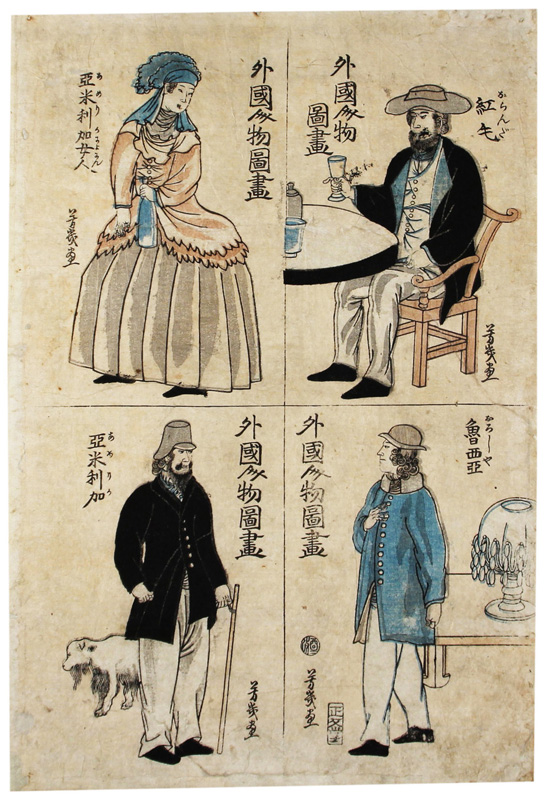 おらんだ
紅毛
外國人物
圖畫
芳幾画
外國人物圖畫
あめりか
亞米利加女人
芳幾画
おろしや
魯西亞
外國人物圖畫
芳幾画
外國人物圖畫
あめりか
亞米利加
芳幾画